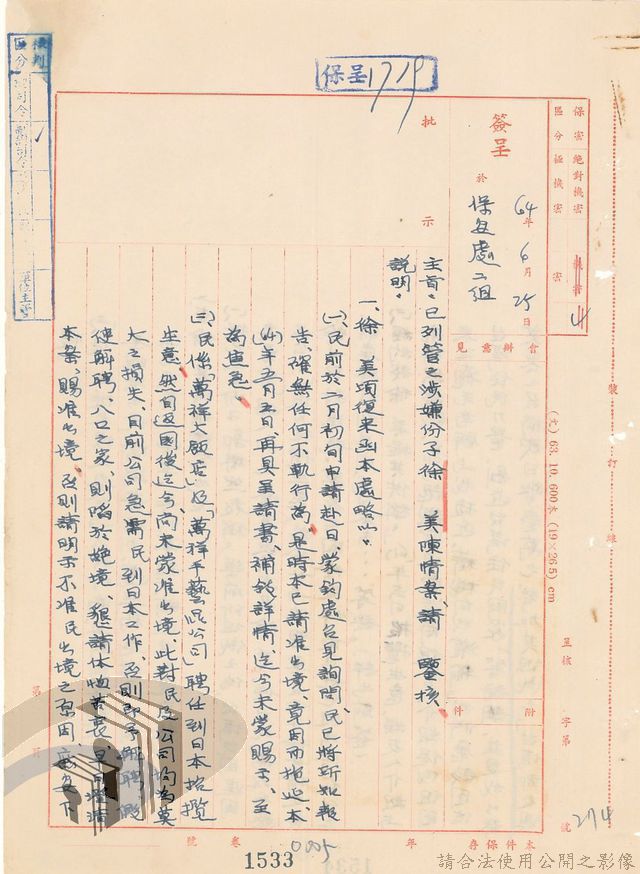 保呈1719
裁判區分
單位主管
保密區分
絕對機密
極機密
機密
密
簽呈
於保安處二組
64年6月25日
批示
會辦意見
附件
主旨：已列管之涉嫌份子徐 美陳情案，請 鑒核。
說明：
一、徐 美頃復來函本處略以：
(一)、民前於二月初旬申請赴日，蒙鈞處召見詢問，民已將所知報
告，確無任何不執行為，是時本已請准出境，竟因而拖延，本
(64)年五月五日，再具呈請書，補敘詳情，迄今未蒙賜示，至
為焦急。
(二)、民係「萬祥大飯店」及「萬祥手藝品公司」聘任到日本招攬
生意，然自返國後迄今，尚未蒙准出境，此對民及公司均為莫
大之損失，目前公司急需民到日本工作，否則即予解聘，
使解聘，八口之家，則陷於絕境，懇請体恤
本案，賜准出境，否則請明示不准民出境之原因
裝訂線
(七) 63.10.600本 (19×26.5) cm
呈核 字第 號
274
第 頁
本件保存 年
卷號
005
1533
請合法使用公開之影像